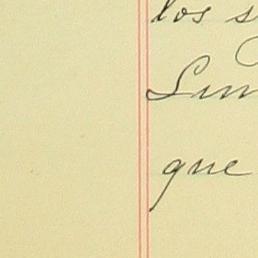 los s
Lun
que